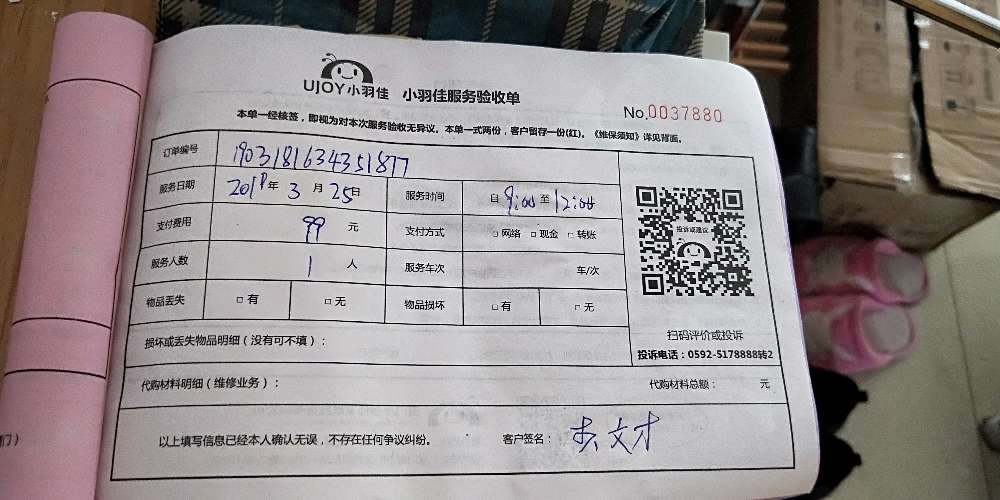 UJOY小羽佳 小羽佳服务验收单
No.0037880
本单一经核签，即视为对本次服务验收无异议。本单一式两份，客户留存一份(红)。《维保须知》详见背面。
订单编号 1903181634351877
服务日期 年 3 月 25日 服务时间 自 9:00 至 12:00
支付费用 99 元 支付方式 □ 网络 □ 现金 □ 转账
服务人数 1 人 服务车次 车/次
物品丢失 □ 有 □ 无 物品损坏 □ 有 □ 无
投诉或建议
扫码评价或投诉
投诉电话：0592-5178888转2
损坏或丢失物品明细（没有可不填）：
代购材料明细（维修业务）： 代购材料总额： 元
以上填写信息已经本人确认无误，不存在任何争议纠纷。 客户签名： 文才